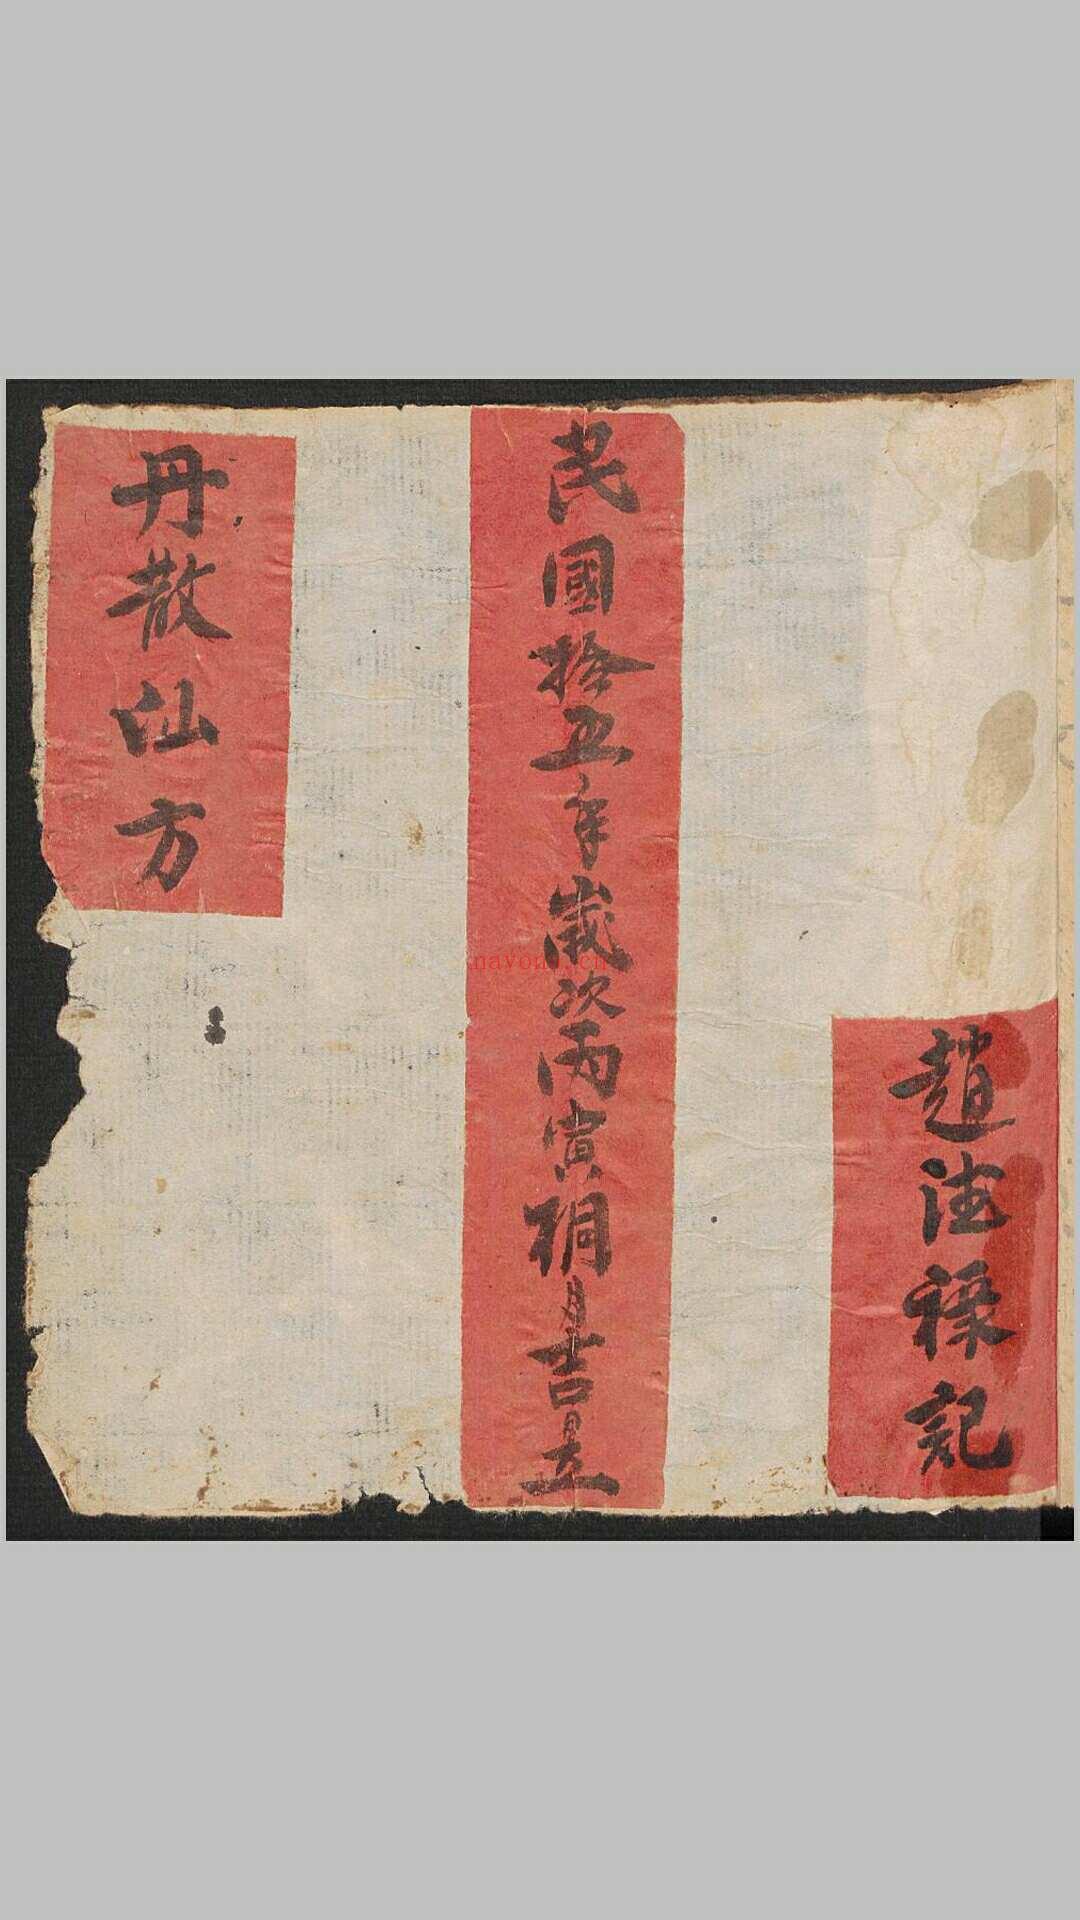 趙德祿記
民國拾五年歲次丙寅桐月吉日立
丹散仙方
nayona.cn